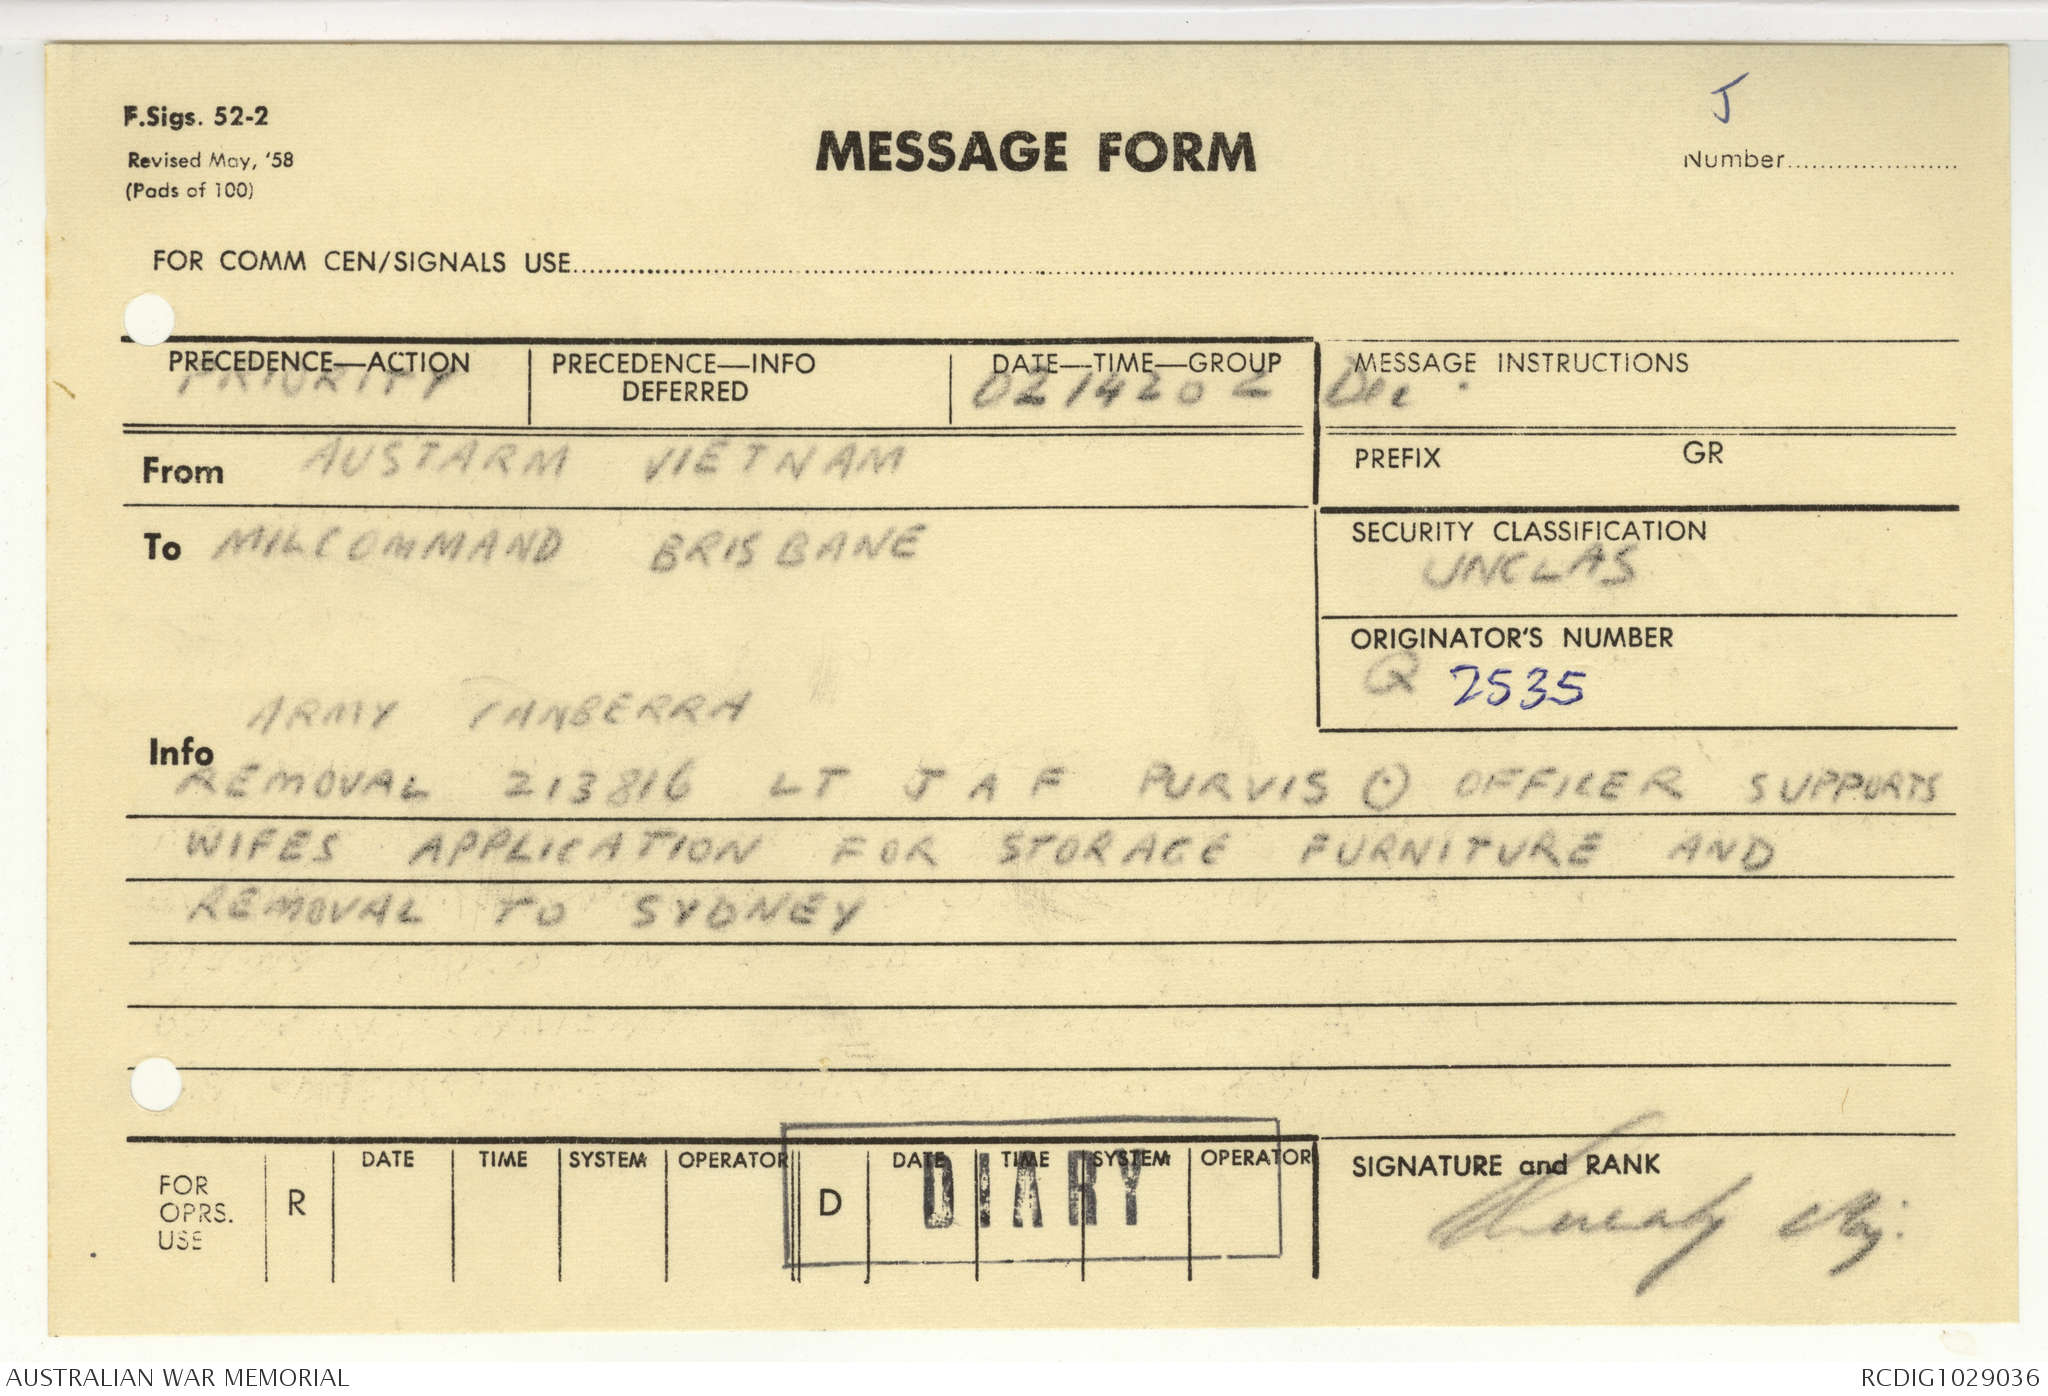 F.Sigs. 52-2
Revised May, '58
(Pads of 100)
MESSAGE FORM
J
Number
FOR COMM CEN/SIGNALS USE
PRECEDENCE—ACTION
PRIORITY
PRECEDENCE—INFO
DEFERRED
DATE—TIME—GROUP
021420Z Dec.
MESSAGE INSTRUCTIONS
From AUSTARM VIETNAM
PREFIX GR
To MILCOMMAND BRISBANE
SECURITY CLASSIFICATION
UNCLAS
ORIGINATOR'S NUMBER
Q 2535
ARMY CANBERRA
Info
REMOVAL 213816 LT J A F PURVIS ⊙ OFFICER SUPPORTS
WIFES APPLICATION FOR STORAGE FURNITURE AND
REMOVAL TO SYDNEY
FOR
OPRS.
USE
R
DATE TIME SYSTEM OPERATOR
D
DATE TIME SYSTEM OPERATOR
DIARY
SIGNATURE and RANK
Maj.
AUSTRALIAN WAR MEMORIAL
RCDIG1029036